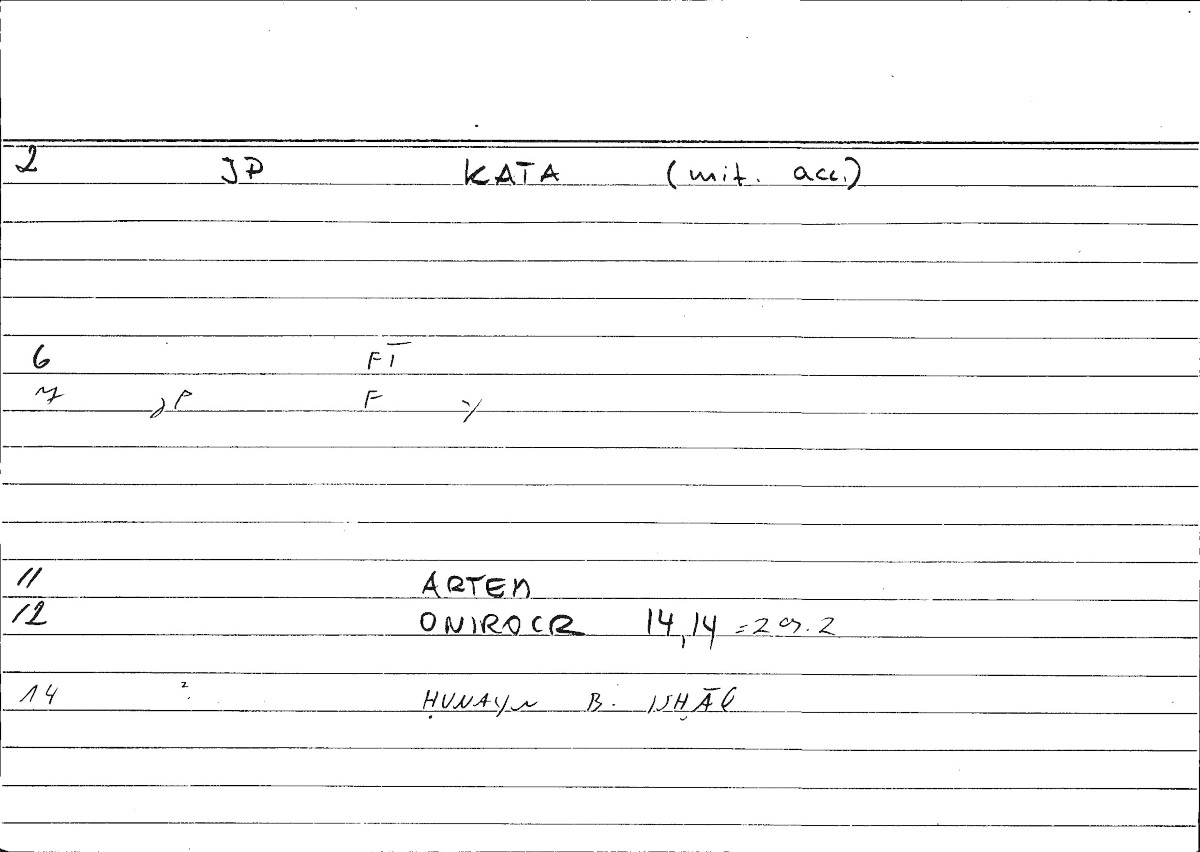 2 JP KATA (mit. acc.)
6 FĪ
7 JP F Y
11 ARTEM
12 ONIROCR 14,14 =
14 ḤUNAYN B. ISḤĀQ